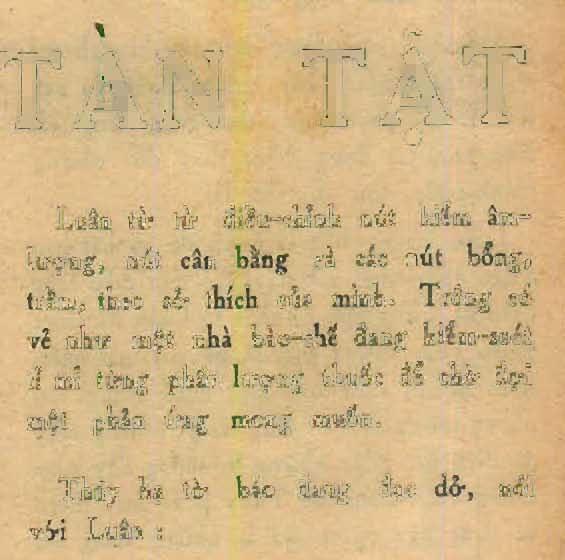 TÀN TẬT
Luân từ từ điều-chỉnh nút kiểm âm-
lượng, nút cân bằng và các nút bổng,
trầm, theo sở thích của mình. Trông có
vẻ như một nhà bào-chế đang kiểm-soát
tỉ mỉ từng phân lượng thuốc để chờ đợi
một phản ứng mong muốn.
Thúy hạ tờ báo đang đọc dở, nói
với Luân :